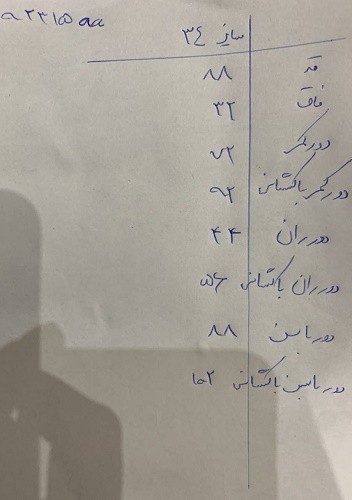 ۹۲۳۱۵۵۹۵
سایز ۳۴
قد ۸۸
فاق ۳۲
دور کمر ۷۲
دور کمر باکشانی ۹۲
دور ران ۴۴
دور ران باکشانی ۵۶
دور باسن ۸۸
دور باسن باکشانی ۱۰۲